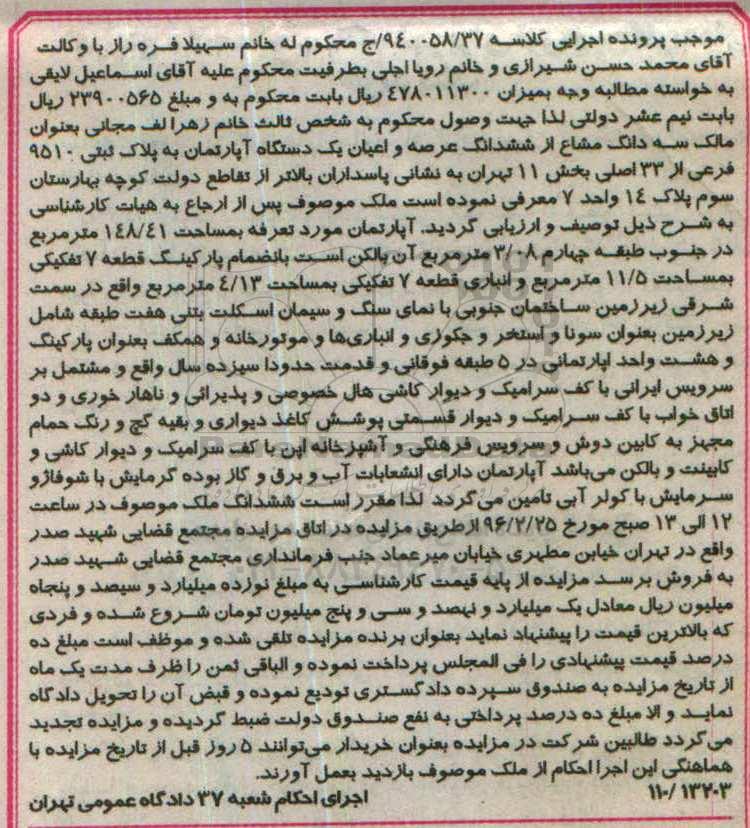 موجب پرونده اجرایی کلاسه ۹۴۰۰۵۸/۳۷/ج محکوم له خانم سهیلا فره راز با وکالت
آقای محمد حسن شیرازی و خانم رویا اجلی بطرفیت محکوم علیه آقای اسماعیل لایقی
به خواسته مطالبه وجه بمیزان ۴۷۸۰۱۱۳۰۰ ریال بابت محکوم به و مبلغ ۲۳۹۰۰۵۶۵ ریال
بابت نیم عشر دولتی لذا جهت وصول محکوم به شخص ثالث خانم زهرا لف مجانی بعنوان
مالک سه دانگ مشاع از ششدانگ عرصه و اعیان یک دستگاه آپارتمان به پلاک ثبتی ۹۵۱۰
فرعی از ۳۳ اصلی بخش ۱۱ تهران به نشانی پاسداران بالاتر از تقاطع دولت کوچه بهارستان
سوم پلاک ۱۴ واحد ۷ معرفی نموده است ملک موصوف پس از ارجاع به هیات کارشناسی
به شرح ذیل توصیف و ارزیابی گردید. آپارتمان مورد تعرفه بمساحت ۱۴۸/۴۱ مترمربع
در جنوب طبقه چهارم ۳/۰۸ مترمربع آن بالکن است بانضمام پارکینگ قطعه ۷ تفکیکی
بمساحت ۱۱/۵ مترمربع و انباری قطعه ۷ تفکیکی بمساحت ۴/۱۳ مترمربع واقع در سمت
شرقی زیرزمین ساختمان جنوبی با نمای سنگ و سیمان اسکلت بتنی هفت طبقه شامل
زیرزمین بعنوان سونا و استخر و جکوزی و انباری‌ها و موتورخانه و همکف بعنوان پارکینگ
و هشت واحد اپارتمانی در ۵ طبقه فوقانی و قدمت حدودا سیزده سال واقع و مشتمل بر
سرویس ایرانی با کف سرامیک و دیوار کاشی هال خصوصی و پذیرائی و ناهار خوری و دو
اتاق خواب با کف سرامیک و دیوار قسمتی پوشش کاغذ دیواری و بقیه گچ و رنگ حمام
مجهز به کابین دوش و سرویس فرهنگی و آشپزخانه اپن با کف سرامیک و دیوار کاشی و
کابینت و بالکن می‌باشد آپارتمان دارای انشعابات آب و برق و گاز بوده گرمایش با شوفاژو
سرمایش با کولر آبی تامین می‌گردد لذا مقرر است ششدانگ ملک موصوف در ساعت
۱۲ الی ۱۳ صبح مورخ ۹۶/۲/۲۵ ازطریق مزایده در اتاق مزایده مجتمع قضایی شهید صدر
واقع در تهران خیابن مطهری خیابان میرعماد جنب فرمانداری مجتمع قضایی شهید صدر
به فروش برسد مزایده از پایه قیمت کارشناسی به مبلغ نوزده میلیارد و سیصد و پنجاه
میلیون ریال معادل یک میلیارد و نهصد و سی و پنج میلیون تومان شروع شده و فردی
که بالاترین قیمت را پیشنهاد نماید بعنوان برنده مزایده تلقی شده و موظف است مبلغ ده
درصد قیمت پیشنهادی را فی المجلس پرداخت نموده و الباقی ثمن را ظرف مدت یک ماه
از تاریخ مزایده به صندوق سپرده دادگستری تودیع نموده و قبض آن را تحویل دادگاه
نماید و الا مبلغ ده درصد پرداختی به نفع صندوق دولت ضبط گردیده و مزایده تجدید
می‌گردد طالبین شرکت در مزایده بعنوان خریدار می‌توانند ۵ روز قبل از تاریخ مزایده با
هماهنگی این اجرا احکام از ملک موصوف بازدید بعمل آورند.
۱۱۰/۱۳۲۰۳ اجرای احکام شعبه ۳۷ دادگاه عمومی تهران